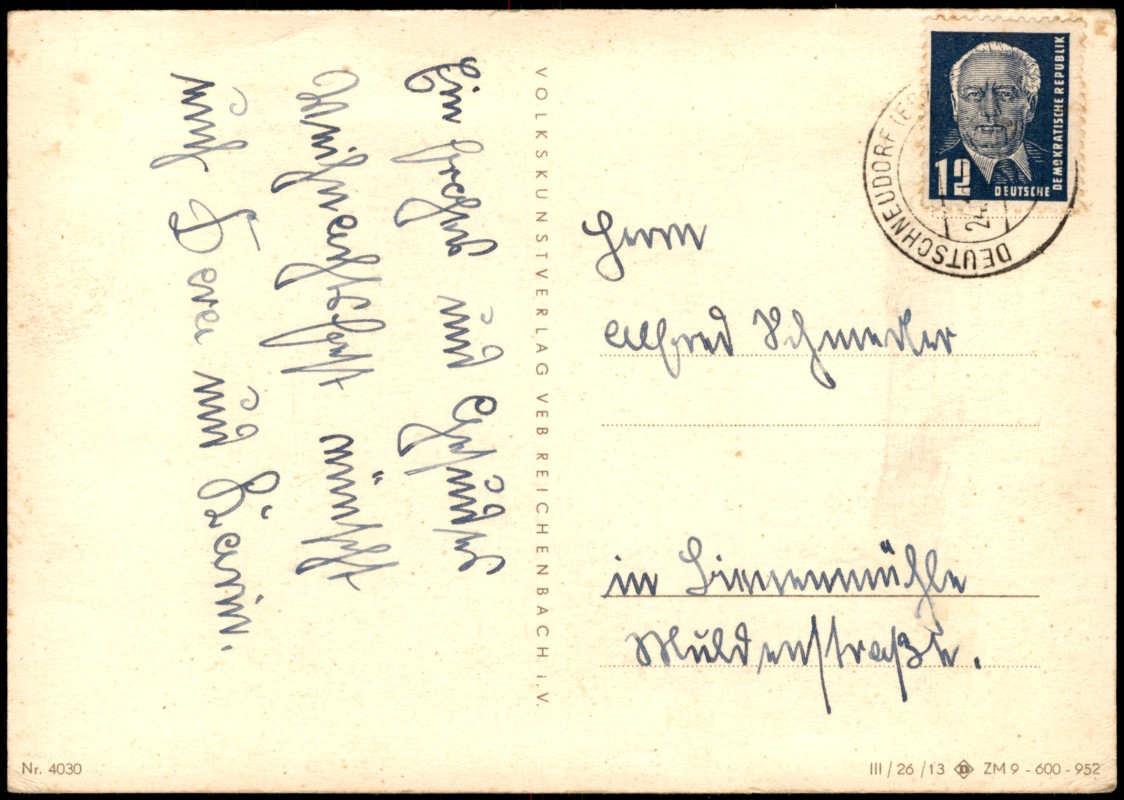 Ein frohes und Gesundes
Weihnachtsfest wünscht
euch Dora und Karin.
VOLKSKUNSTVERLAG VEB REICHENBACH i. V.
12
DEUTSCHE
DEMOKRATISCHE REPUBLIK
DEUTSCHNEUDORF
24.
Herrn
Alfred
in Bienenmühle
Muldenstraße.
Nr. 4030
III/26/13 ZM 9 - 600 - 952